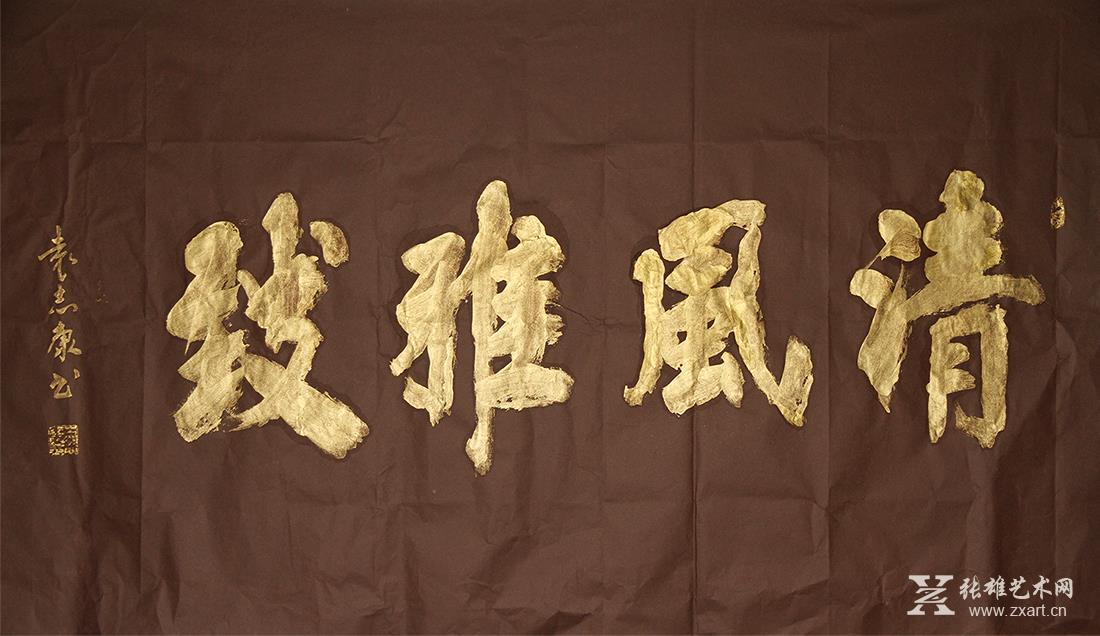 清風雅致
袁志康书
张雄艺术网
www.zxart.cn